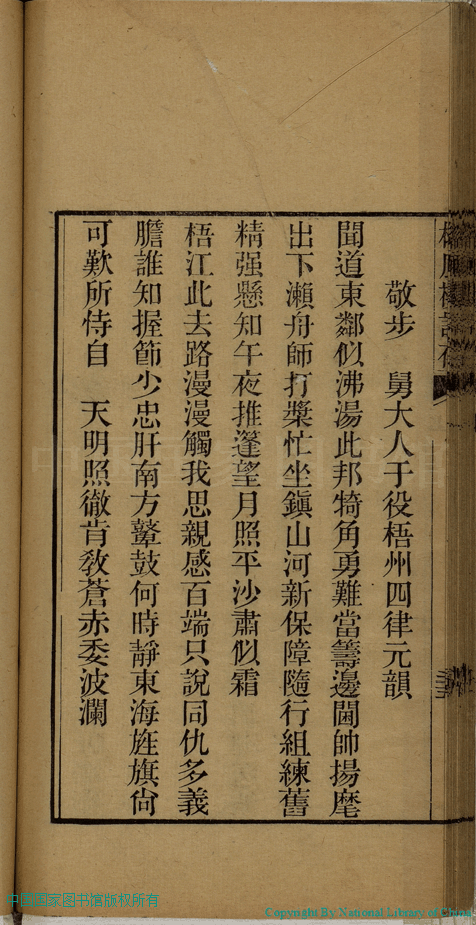 敬步　舅大人于役梧州四律元韻
聞道東鄰似沸湯此邦犄角勇難當籌邊閫帥揚麾
出下瀨舟師打槳忙坐鎮山河新保障隨行組練舊
精强懸知午夜推篷望月照平沙肅似霜
梧江此去路漫漫觸我思親感百端只說同仇多義
膽誰知握節少忠肝南方鼙鼓何時靜東海旌旗尙
可歎所恃自　天明照徹肯敎蒼赤委波瀾
中国国家图书馆版权所有
Copyright By National Library of China